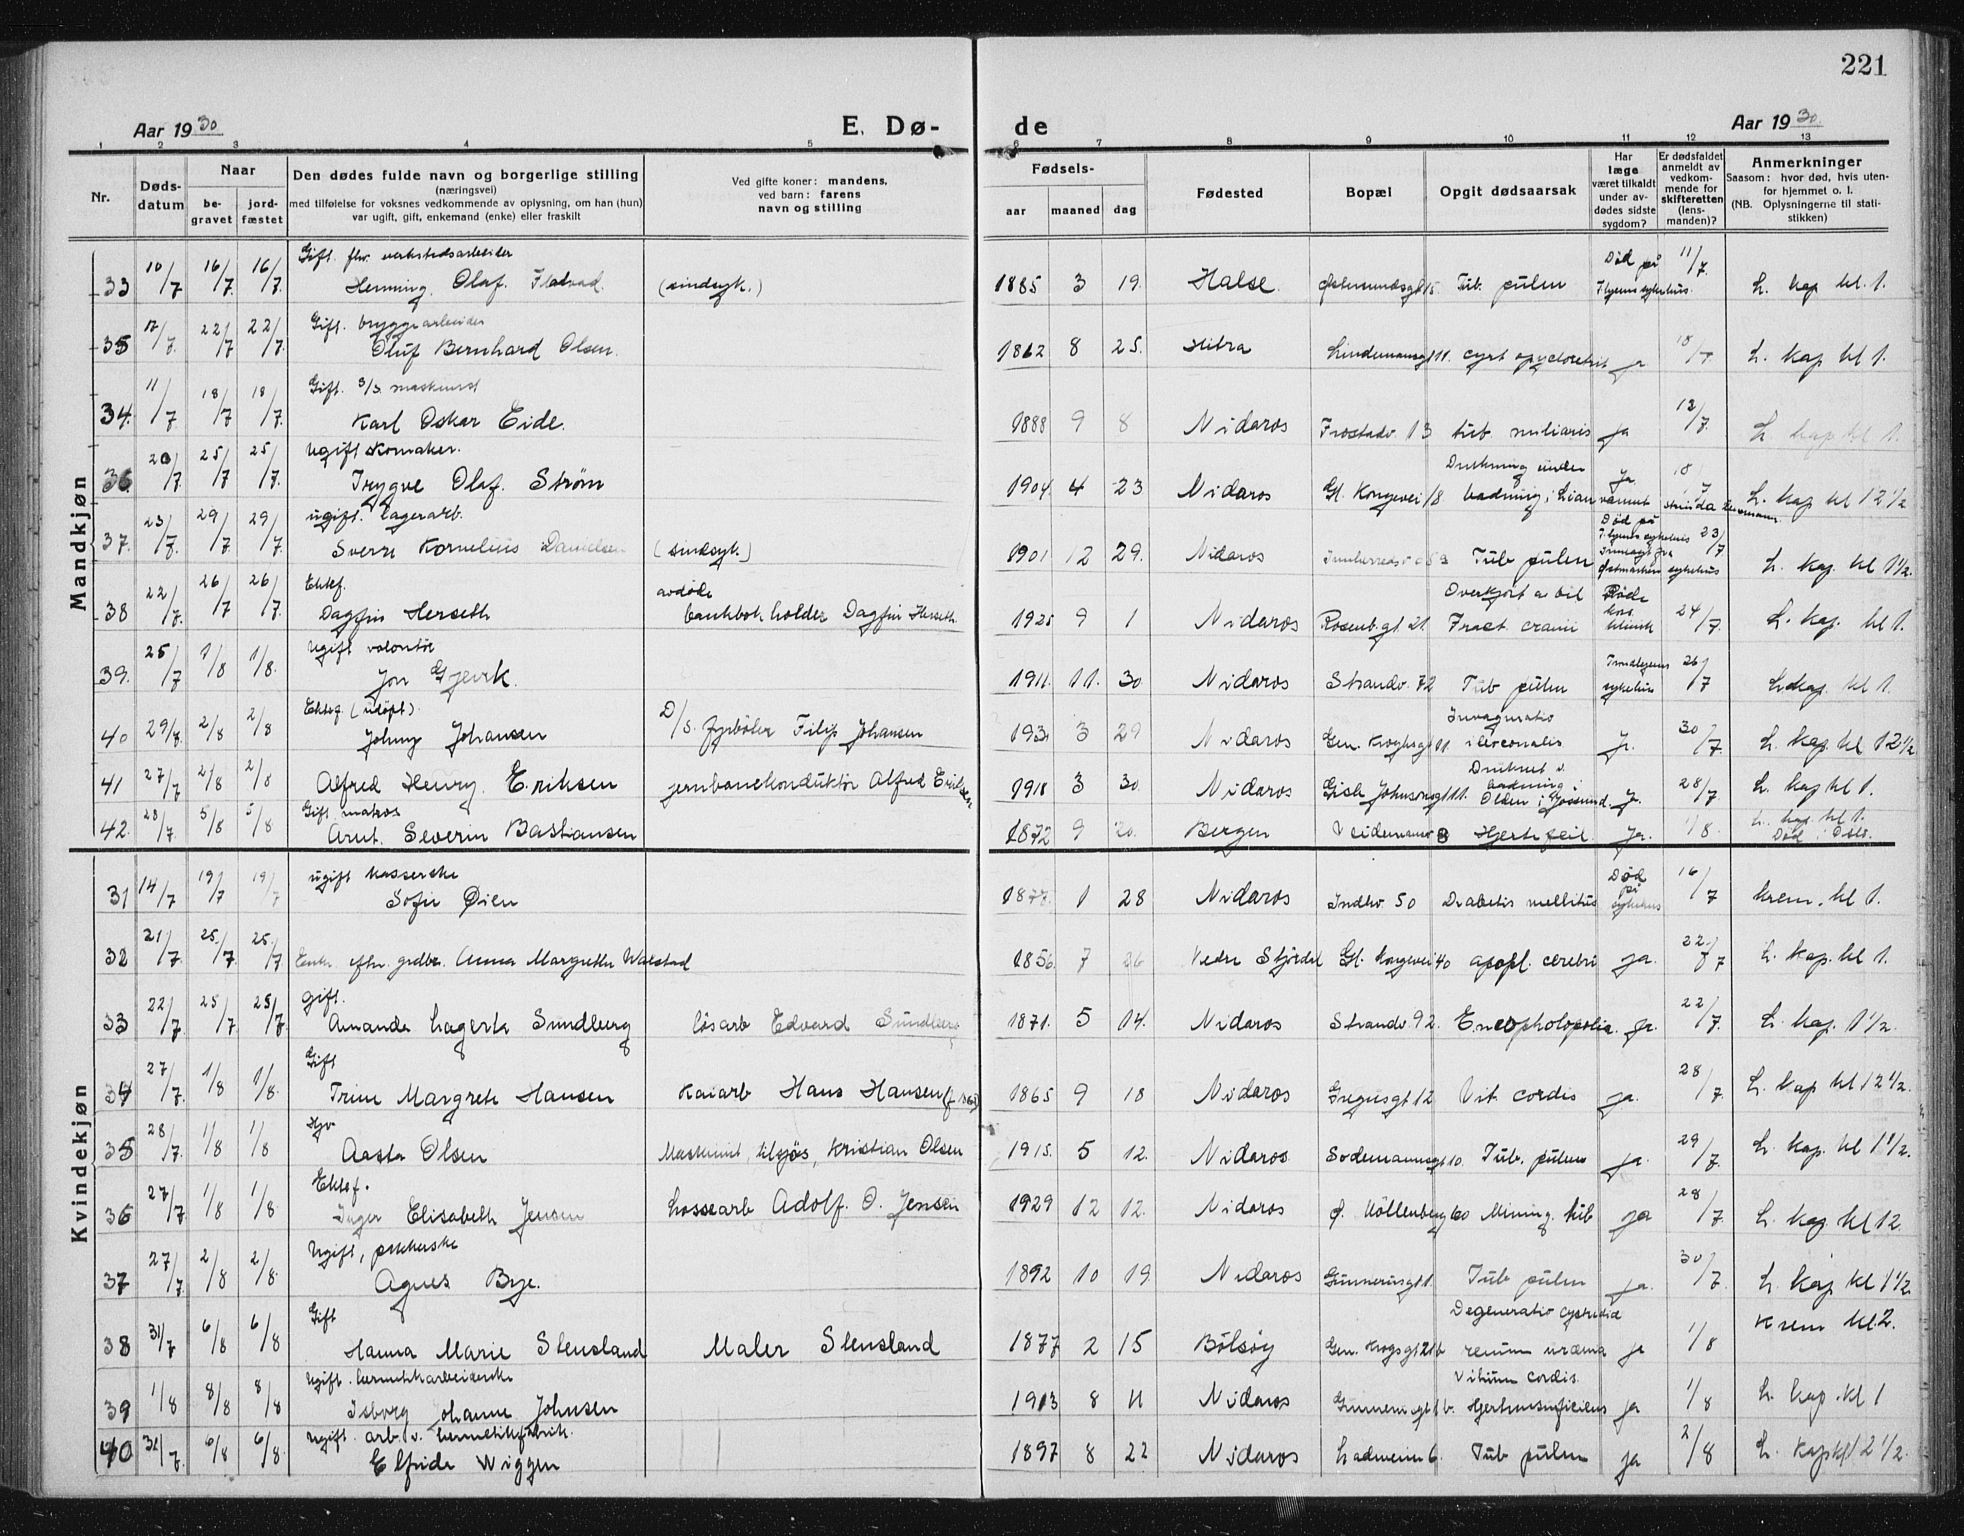 221
Aar 1930
E. Dø-
de
Aar 1930.
1 2 3 4 5 6 7 8 9 10 11 12 13
Nr.
Døds-
datum
Naar
be-
gravet
jord-
fæstet
Den dødes fulde navn og borgerlige stilling
(næringsvei)
med tilføielse for voksnes vedkommende av oplysning, om han (hun)
var ugift, gift, enkemand (enke) eller fraskilt
Ved gifte koner: mandens,
ved barn: farens
navn og stilling
Fødsels-
aar maaned dag
Fødested
Bopæl
Opgit dødsaarsak
Har
læge
været tilkaldt
under av-
dødes sidste
sygdom?
Er dødsfaldet
anmeldt av
vedkom-
mende for
skifteretten
(lens-
manden)?
Anmerkninger
Saasom: hvor død, hvis uten-
for hjemmet o. l.
(NB. Oplysningerne til stati-
stikken)
Mandkjøn
Gift. fhv. verkstedsarbeider
33 10/7 16/7 16/7 Henning Olaf (sindsyk.) 1885 3 19. Halse. Tub. pulm Død på sykehus. 11/7. L. kap kl. 1.
Gift. bryggearbeider
35 17/7. 22/7 22/7. Oluf Bernhard Olsen. 1862 8 25. Hitra Lindemansgt 11. ja 18/7 L. kap kl 1.
Gift. maskinist
34. 11/7 18/7 18/7. Karl Oskar Eide. 1888 9 8 Nidaros Frostadv. 13 tub. miliaris ja 12/7. L. kap kl 1.
Ugift skomaker.
36 20/7 25/7 25/7. Trygve Olaf. Strøm 1904. 4 23 Nidaros Gl. Kongevei 18 Drukning under badning i Lian ja 18 Strinda L. kap kl 12 1/2
ugift. lagerarb.
37. 23/7. 29/7 29/7. Sverre Kornelius Danielsen (sindsyk.) 1901 12 29. Nidaros Tub pulm Død på sykehus Østmarken sykehus 23/7 L. kap. kl 1 1/2.
Ektef.
38 22/7. 26/7 26/7. Dagfin Herseth avdøde bankbokholder Dagfin Herseth. 1925 9 1 Nidaros Rosenb.gt 21. Overkjørt av bil Fract. cranii klinik 24/7. L. kap. kl 1.
Ugift volontør
39. 25/7 1/8 1/8. Jon Gjevik. 1911. 11. 30 Nidaros Strandv. 72 Tub pulm sykehus 26/7 L. kap. kl 1.
Ektef (udøpt).
40 29/8. 2/8 2/8 Johny Johansen D/S. fyrbøter Filip Johansen 193. 3 29 Nidaros Gen. Kroghsgt 11. Invaginatio ileocoecalis Ja. 30/7. L. kap kl 12 1/2
41 27/7 2/8 2/8 Alfred Henry. Eriksen jernbanekonduktør Alfred Eriksen 1918 3 30 Nidaros Gisle Johnsonsgt 11. Druknet v. badning Ja. 28/7 L. kap kl 1.
Gift
42. 28/7. 5/8 5/8 Arnt. Severin Bastiansen 1872 9 20. Bergen Hjertefeil Ja. 1/8. L. kap. kl 1. Død i Oslo.
Kvindekjøn
ugift kasserske
31 14/7 19/7 19/7 Sofie Øien 1877. 1 28 Nidaros Indhv. 50 Diabetis mellitus Død på sykehus 16/7 krem. kl 1.
32 21/7. 25./7. 25./7 Enke efter. grdbr. Anna Margrethe Walstad 1856. 7 26 Nedre Stjørdal Gl. Kongevei 40 apopl. cerebri ja. 22/7 L. kap. kl 1.
gift.
33 22/7 25/7. 25/7. Amanda Lagerta Sundberg løsarb Edvard Sundberg 1871. 5 14. Nidaros Strandv. 92. ja. 22/7. L. kap. 1 1/2.
Gift
34 27/7. 1/8 1/8. Trine Margrete Hansen Kaiarb Hans Hansen 1865 9 18 Nidaros Gregusgt 12 Vit. cordis ja. 28/7. L. kap kl 12 1/2.
35 28/7. 1/8 1/8 Aasta Olsen Maskinist, tilsjøs, Kristian Olsen 1915. 5 12. Nidaros Sodemannsgt 10. Tub. pulm ja. 29/7. L. kap. kl 1 1/2.
Ektef.
36 27/7. 1/8 1/8 Inger Elisabeth Jensen Lossearb Adolf. O. Jensen 1929 12 12. Nidaros Ø. Möllenberg 60 Mining. tub ja 28/7. L. kap kl 12.
Ugift,
37 27/7 2/8 2/8. Agnes Bye. 1892 10 19. Nidaros Gunnerusgt 1. Tub pulm ja. 30/7. L. kap kl 1 1/2.
Gift
38 31/7 6/8 6/8 Hanna Marie Stensland Maler Stensland 1877 2 15 Bolsöy Gen. Krogsgt 21b Degeneratio cystica renum uræmia ja 1/8 Krem kl. 2.
Ugift. hermetikkarbeiderske
39 1/8 8/8 8/8 Isborg Johanne Johnsen 1913 8 11 Nidaros Gunnerusgt 1 b. Vitium cordis. Hjerteinsuficiens ja 1/8 L. kap. kl 1
Ugift arb. v. hermetikfabrik.
40 31/7. 6/8 6/8. Elfride Wiggen 1897 8 22 Nidaros Ladeveien 6. Tub pulm ja 2/8 L. kap kl 12 1/2.